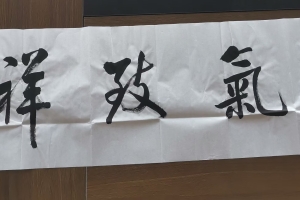 氣致祥